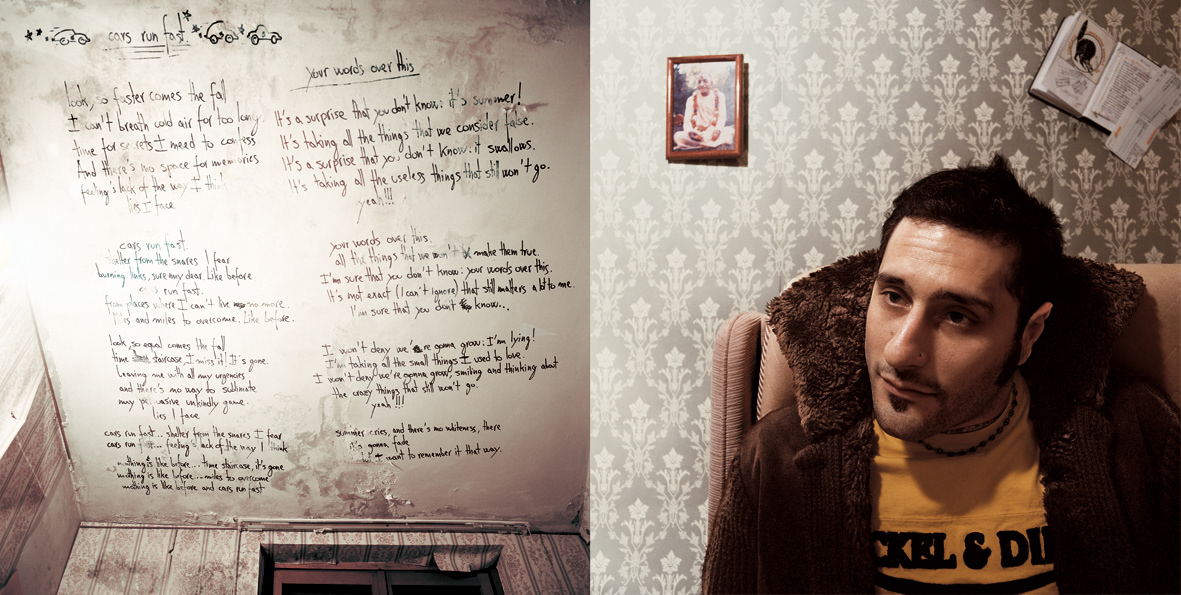 cars run fast.
look, so faster comes the fall
I can't breath cold air for too long.
time for secrets I need to confess
And there's no space for memories
feeling's lack of the way I think
lies I face
cars run fast.
shelter from the snares I fear
burning links, sure my dear. Like before
cars run fast.
from places where I can't live no more.
miles and miles to overcome. Like before.
look, so equal comes the fall
time staircase, I miss it! It's gone.
Leaving me with all my urgencies
and there's no way to sublimate
my pervasive unkindly game.
lies I face
cars run fast... shelter from the snares I fear
cars run fast... feeling's lack of the way I think
nothing is like before... time staircase, it's gone
nothing is like before... miles to overcome
nothing is like before and cars run fast
your words over this
It's a surprise that you don't know: it's summer!
It's taking all the things that we consider false.
It's a surprise that you don't know: it swallows.
It's taking all the useless things that still won't go.
yeah!!!
your words over this.
all the things that we won't make them true.
I'm sure that you don't know: your words over this.
It's not exact (I can't ignore) that still matters a lot to me.
I'm sure that you don't know..
I won't deny we're gonna grow: I'm lying!
I'm taking all the small things I used to love.
I won't deny we're gonna grow, smiling and thinking about
the crazy things that still won't go.
yeah!!!
summer cries, and there's no whiteness, there
it's gonna fade
I want to remember it that way.
CKEL & DI